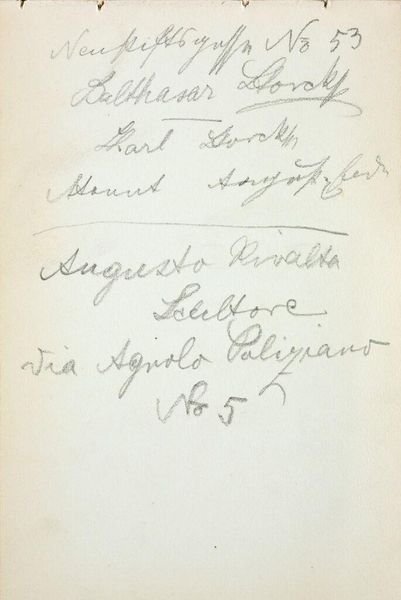 Neustiftgasse No 53
Balthasar Storck
Karl Storck
August
Augusto Rivalta
Scultore
Via Agnolo Poliziano
No 5